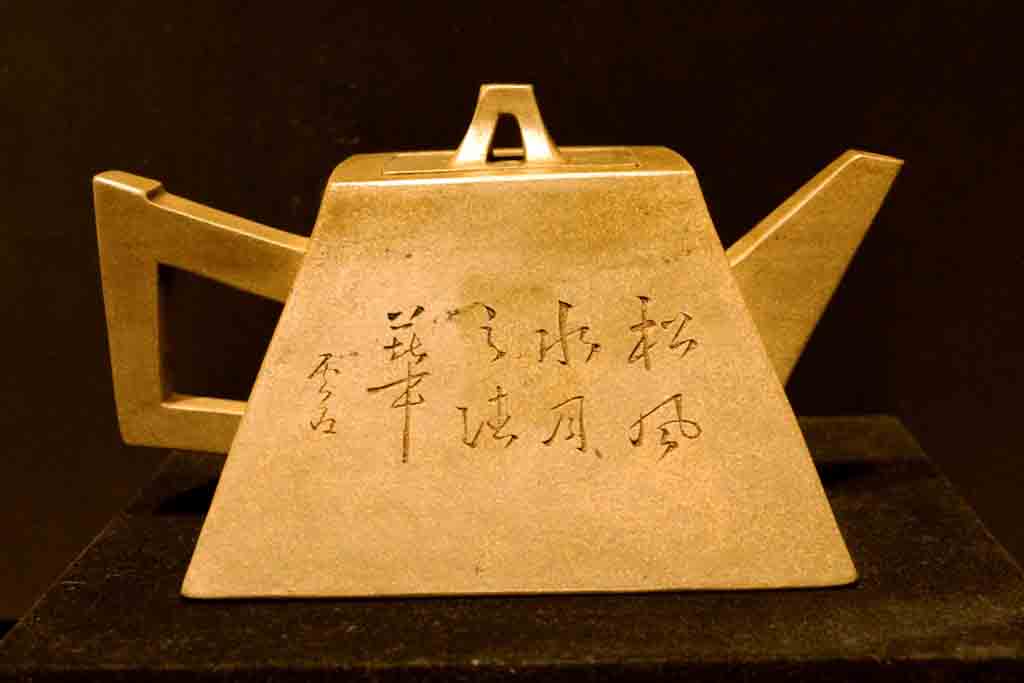 松風
水月
清
華